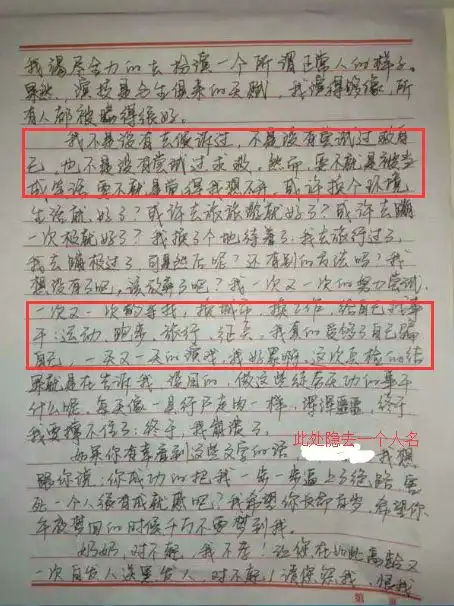 我竭尽全力的去扮演一个所谓正常人的样子。
果然,演技是与生俱来的天赋,我演得够像,所
有人都被骗得很好。
我不是没有去倾诉过,不是没有尝试过救自
己,也不是没有尝试过求救。然而,要不就是被当
成笑话,要不就是觉得我想不开,或许换个环境
生活就好了?或许去旅旅游就好了?或许去蹦
一次极就好了?我换了个地待着了;我去旅行过了,
我去蹦极过了,可是然后呢?还有别的方法吗?我
想没有了吧,该放弃了吧?我一次又一次的努力尝试,
一次又一次的寻找,换城市,换工作,给自己找事
干:运动、跑步、旅行、征兵。我真的受够了自己骗
自己,一天又一天的演戏,我好累啊。这次点检的结
果就是在告诉我,没用的,做这些徒劳无功的事干
什么呢,每天像一具行尸走肉一样,浑浑噩噩,终于
我要撑不住了;终于,我崩溃了。
此处隐去一个人名
如果你有幸看到这些文字的话,我想
跟你说:你成功的把我一步一步逼上了绝路,害
死一个人很有成就感吧?我希望你长命百岁,希望你
午夜梦回的时候千万不要梦到我。
奶奶,对不起,我不孝!让你在如此高龄又
一次白发人送黑发人,对不起!请原谅我,恨我
第 页